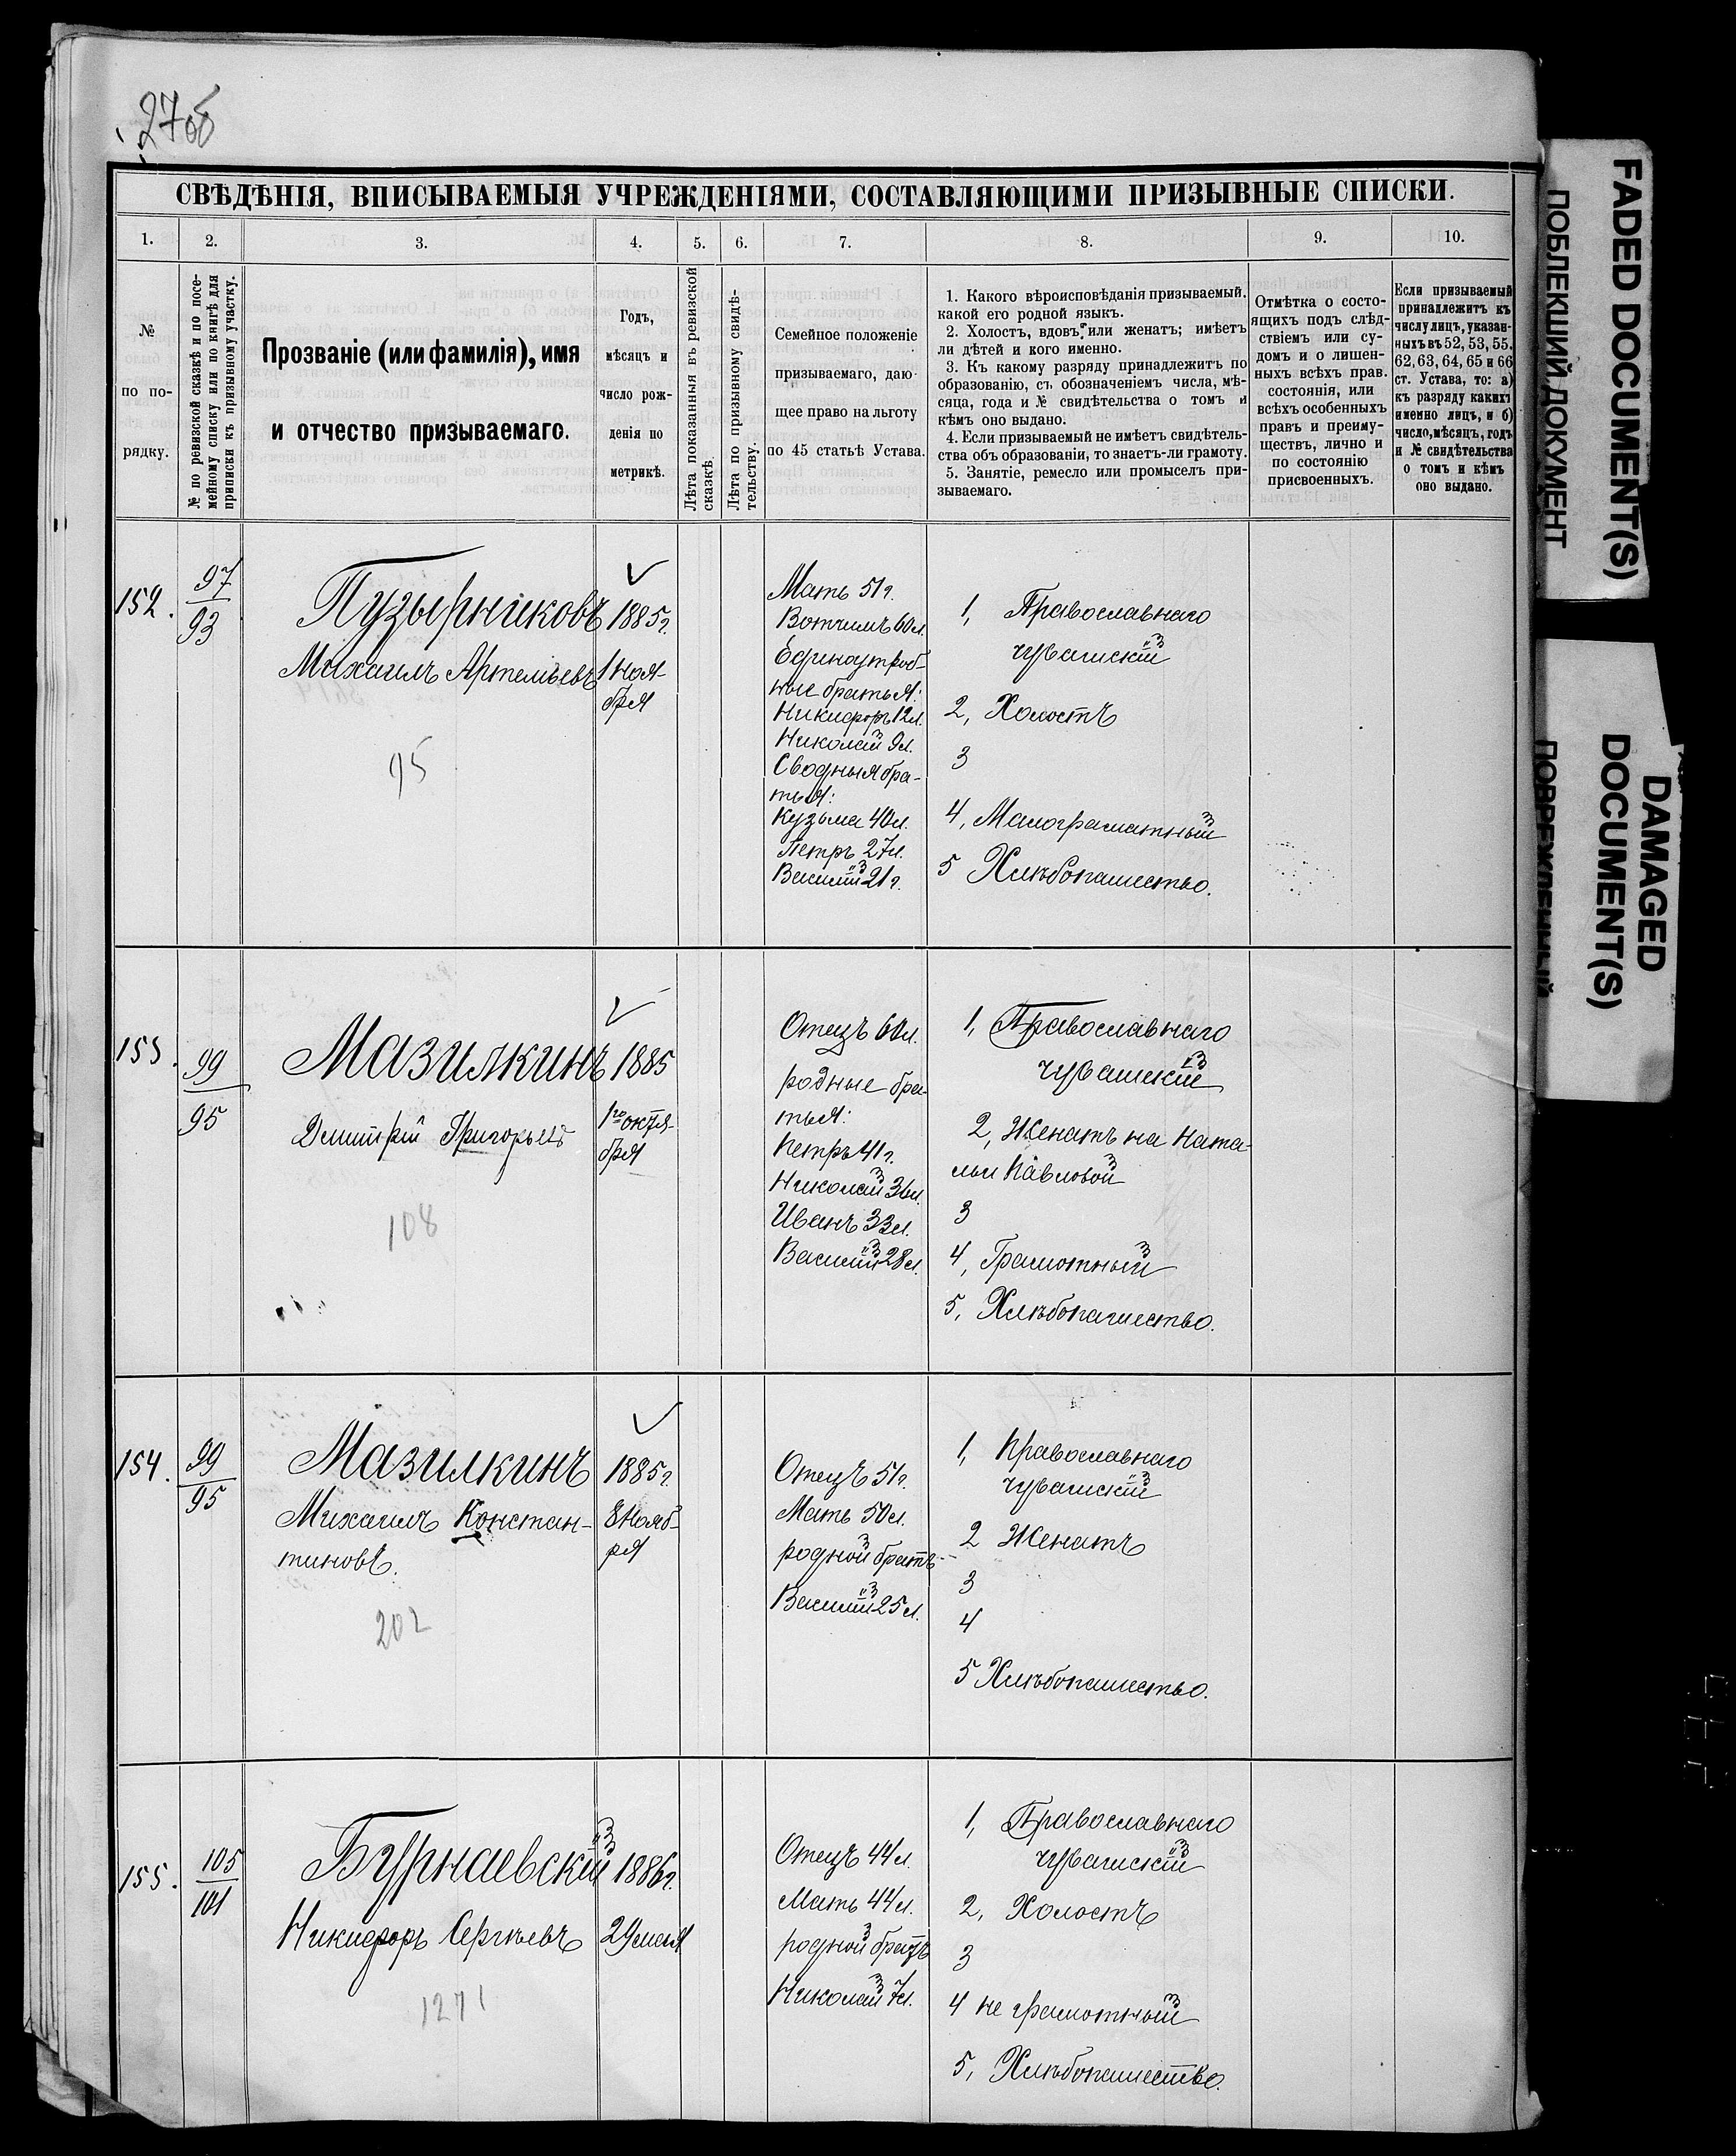 27об
СВѢДѢНІЯ, ВПИСЫВАЕМЫЯ УЧРЕЖДЕНІЯМИ, СОСТАВЛЯЮЩИМИ ПРИЗЫВНЫЕ СПИСКИ.
1.
2.
3.
4.
5.
6.
7.
8.
9.
10.
№
по по-
рядку.
№ по ревизской сказкѣ и по посе-
мейному списку или по книгѣ для
приписки къ призывному участку.
Прозваніе (или фамилія), имя
и отчество призываемаго.
Годъ,
мѣсяцъ и
число рож-
денія по
метрикѣ.
Лѣта показанныя въ ревизской
сказкѣ.
Лѣта по призывному свидѣ-
тельству.
Семейное положеніе
призываемаго, даю-
щее право на льготу
по 45 статьѣ Устава.
1. Какого вѣроисповѣданія призываемый.
какой его родной языкъ.
2. Холостъ, вдовъ или женатъ; имѣетъ
ли дѣтей и кого именно.
3. Къ какому разряду принадлежитъ по
образованію, съ обозначеніемъ числа, мѣ-
сяца, года и № свидѣтельства о томъ и
кѣмъ оно выдано.
4. Если призываемый не имѣетъ свидѣтель-
ства объ образованіи, то знаетъ-ли грамоту.
5. Занятіе, ремесло или промыселъ при-
зываемаго.
Отмѣтка о состо-
ящихъ подъ слѣд-
ствіемъ или су-
домъ и о лишен-
ныхъ всѣхъ прав.
состоянія, или
всѣхъ особенныхъ
правъ и преиму-
ществъ, лично и
по состоянію
присвоенныхъ.
Если призываемый
принадлежитъ къ
числу лицъ, указан-
ныхъ въ 52, 53, 55.
62, 63, 64, 65 и 66
ст. Устава, то: а)
къ разряду какихъ
именно лицъ, и б)
число, мѣсяцъ, годъ
и № свидѣтельства
о томъ и кѣмъ
оно выдано.
152.
97
93
Пузырниковъ
Михаилъ Артемьевъ
95
1885г.
1 ноя-
бря
Мать 51г.
Вотчимъ 60л.
Единоутроб-
ные братья:
Никифоръ 12л.
Николай 9л.
Сводныя бра-
тья:
Кузьма 40л.
Петръ 27л.
Василій 21г.
1, Православнаго
чувашскій
2, Холостъ
3
4, Малограматный
5 Хлѣбопашество.
153.
99
95
Мазилкинъ
Дмитрій Григорьев
108
1885
1го октя-
бря
Отецъ 60л.
родные бра-
тья:
Петръ 41г.
Николай 36л.
Иванъ 33л.
Василій 28л.
1, Православнаго
чувашскій
2, Женатъ на Ната-
льи Павловой
3
4, Грамотный
5, Хлѣбопашество.
154.
99
95
Мазилкинъ
Михаилъ Констан-
тиновъ.
202
1885г.
8 Нояб-
ря
Отецъ 51г.
Мать 50л.
родной братъ
Василій 25л.
1, Православнаго
чувашскій
2 Женатъ
3
4
5 Хлѣбопашество.
155.
105
101
Бурнаевскій
Никифоръ Сергѣевъ
1271
1886г.
29 мая
Отецъ 44л.
Мать 44л.
родной братъ
Николай 7л.
1, Православнаго
чувашскій
2, Холостъ
3
4 не грамотный
5, Хлѣбопашество.
FADED DOCUMENT(S)
ПОБЛЕКШИЙ ДОКУМЕНТ
DAMAGED
DOCUMENT(S)
ПОВРЕЖДЕННЫЙ